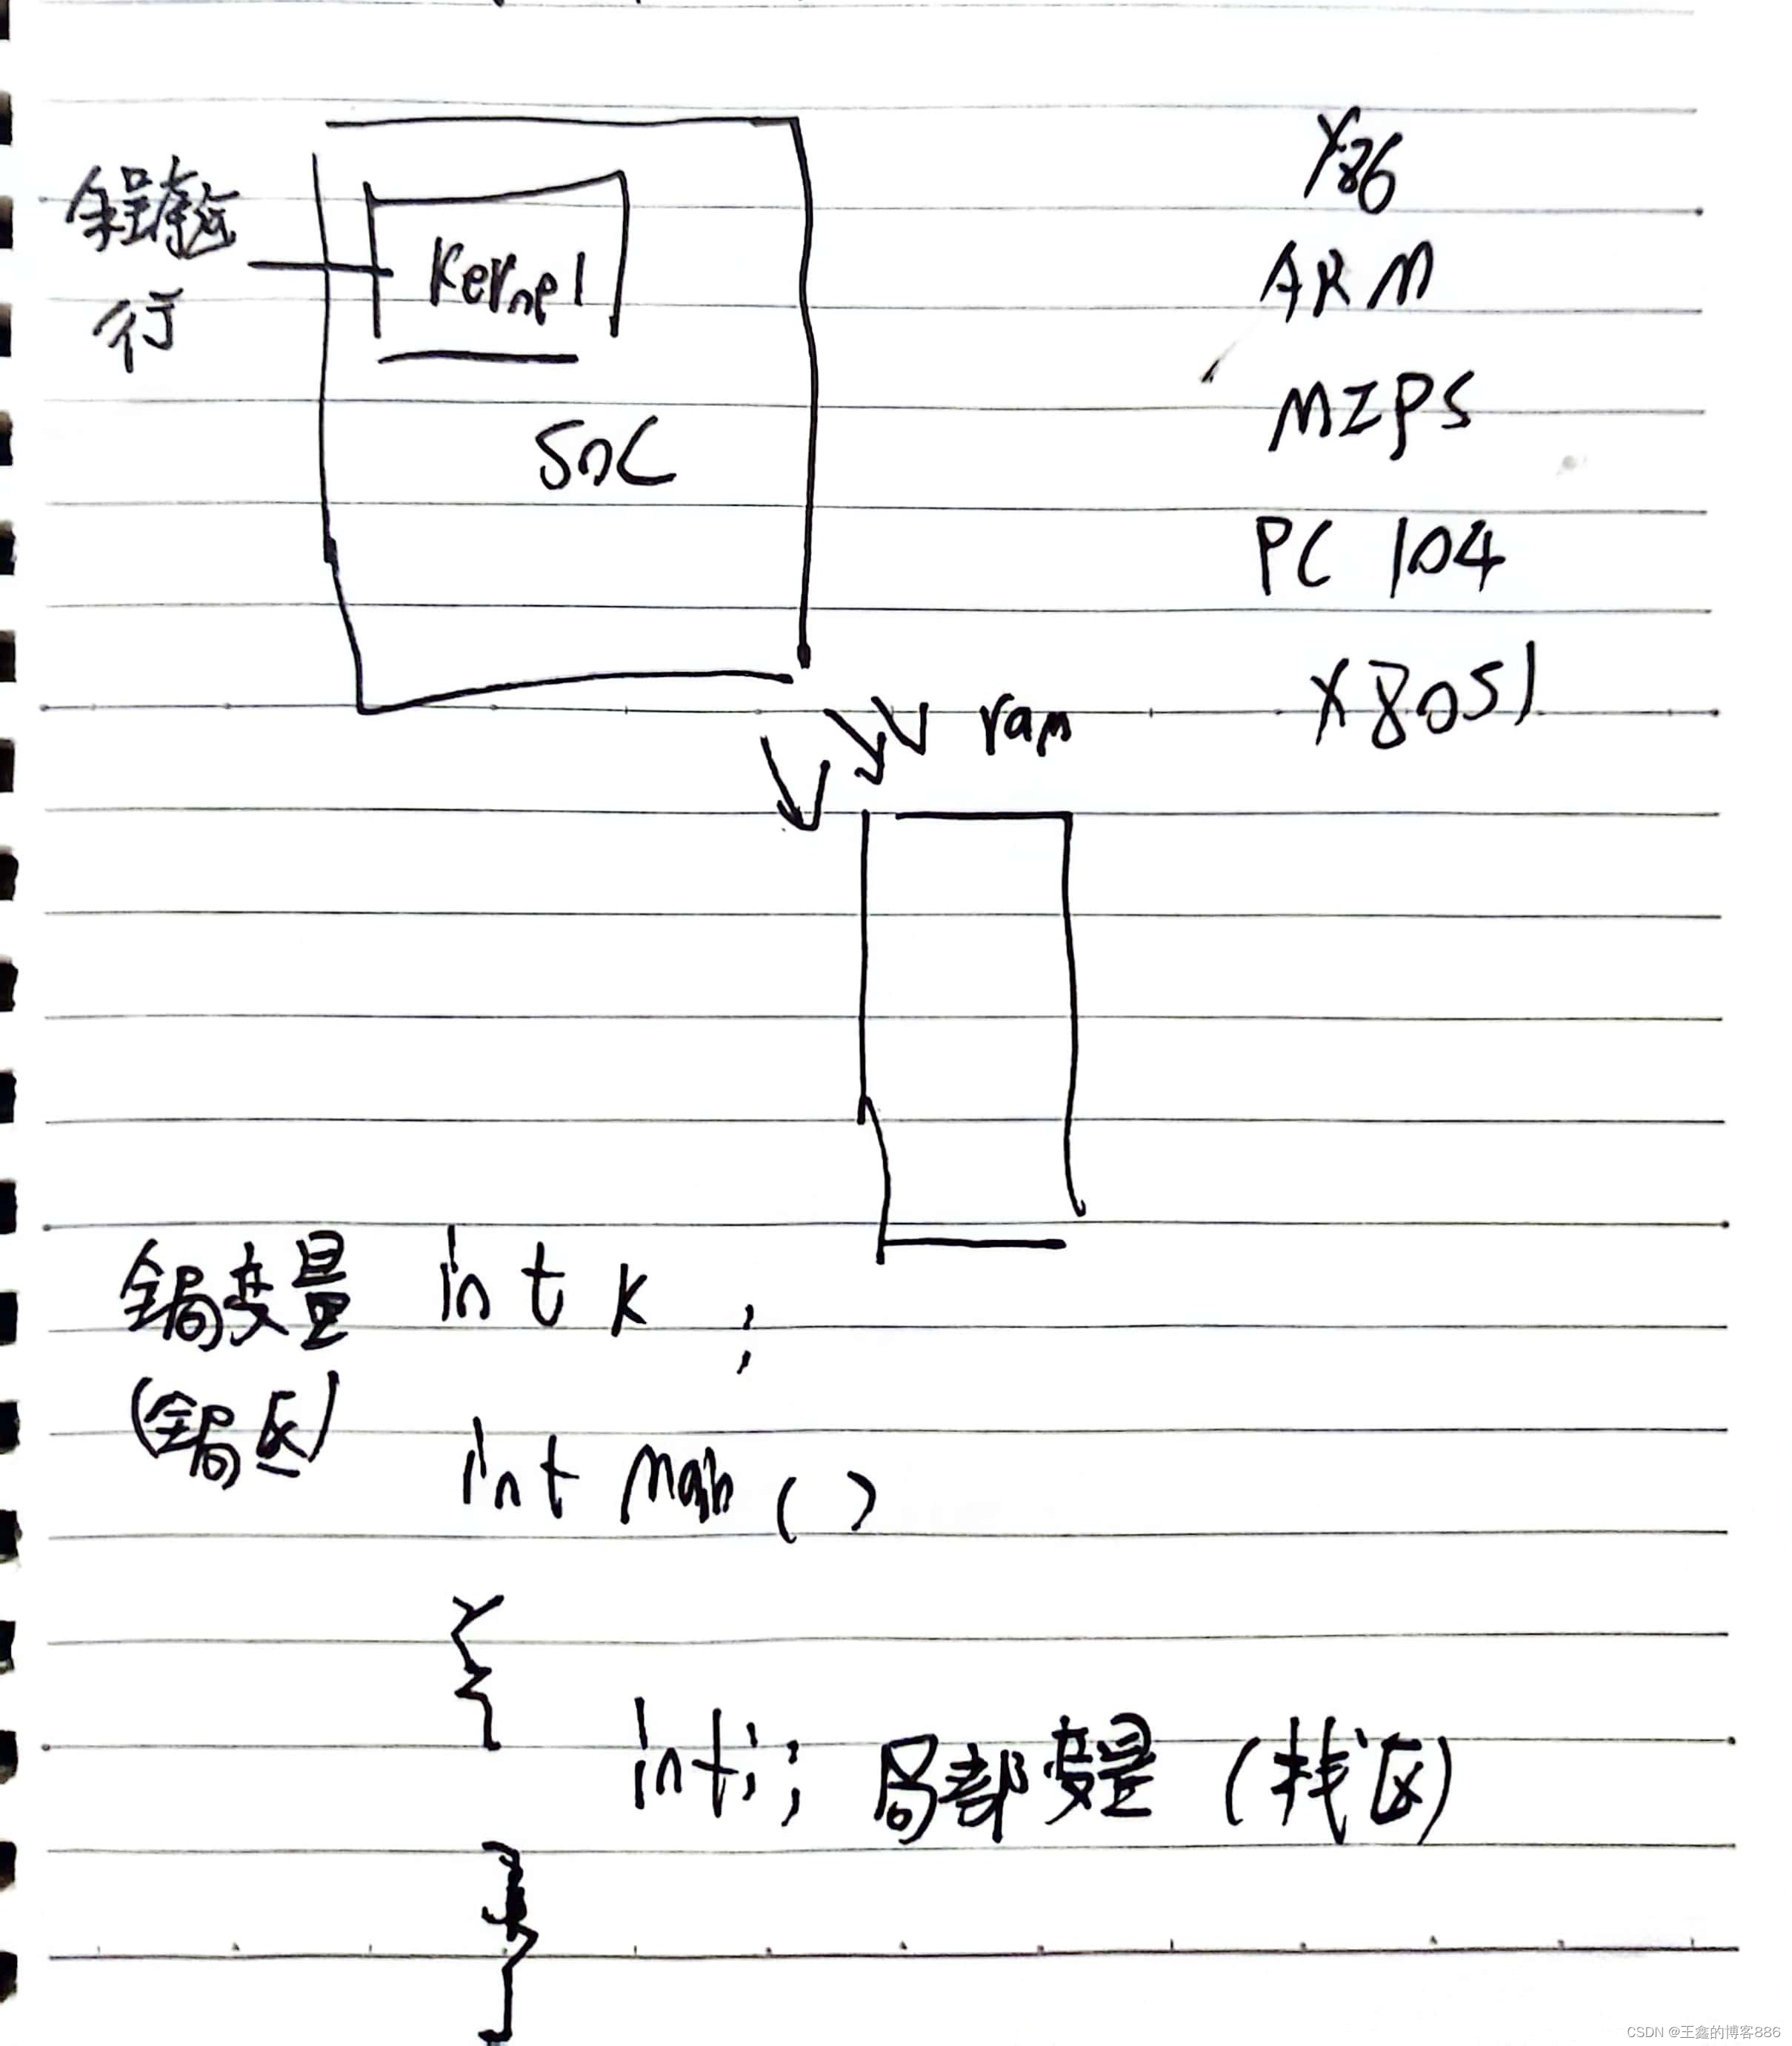 X86
行
Kernel
ARM
SOC
MIPS
PC 104
X8051
ram
全局变量 int k ;
(全局区)
int main ( )
{
int i; 局部变量 (栈区)
}
CSDN @王鑫的博客886